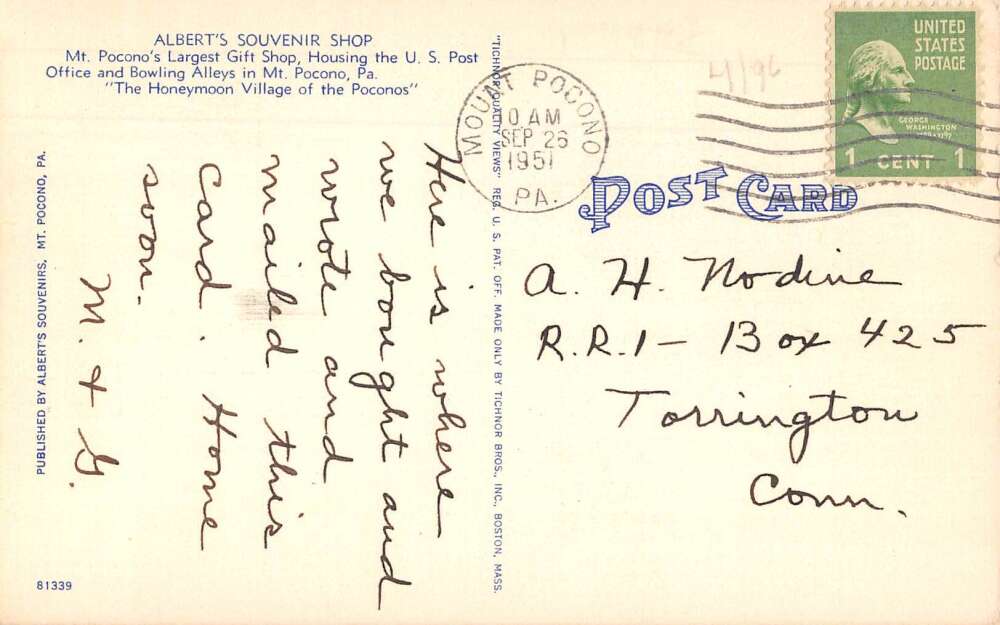 ALBERT'S SOUVENIR SHOP
Mt. Pocono's Largest Gift Shop, Housing the U. S. Post
Office and Bowling Alleys in Mt. Pocono, Pa.
"The Honeymoon Village of the Poconos"
Here is where
we bought and
wrote and
mailed this
card. Home
soon.
M. & G.
PUBLISHED BY ALBERT'S SOUVENIRS, MT. POCONO, PA.
81339
"TICHNOR QUALITY VIEWS" REG. U. S. PAT. OFF. MADE ONLY BY TICHNOR BROS., INC., BOSTON, MASS.
MOUNT POCONO
0 AM
SEP 26
1951
PA.
UNITED
STATES
POSTAGE
GEORGE
WASHINGTON
1 CENT 1
POST CARD
A. H. Nodine
R.R.1 - Box 425
Torrington
Conn.